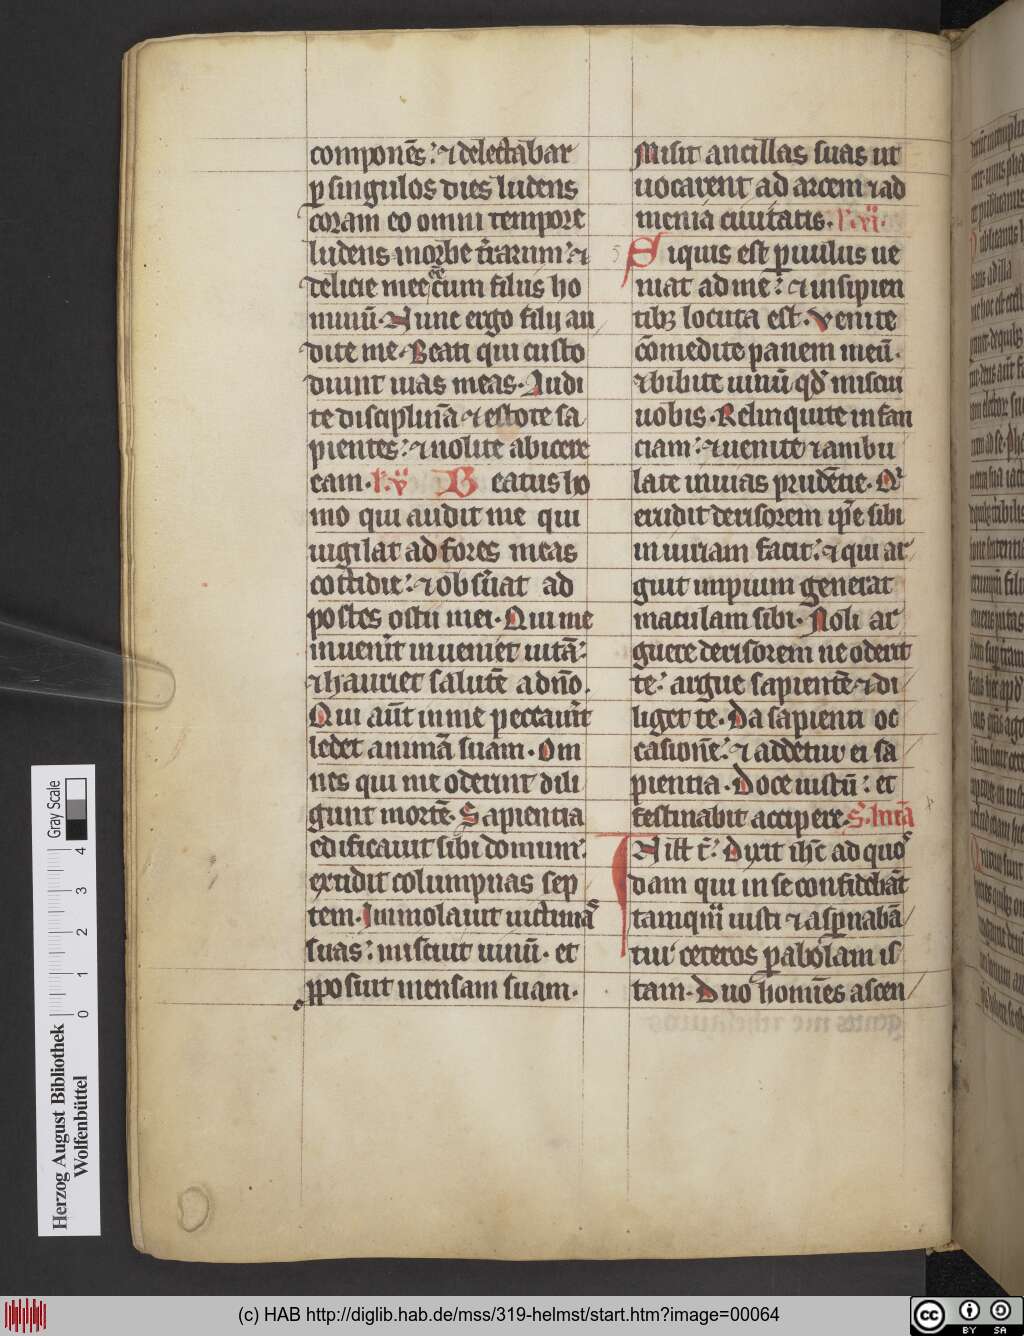 componēs: ⁊ delectabar
ꝑ singulos dies ludens
coram eo omni tempore
ludens in orbe t̄rarum: ⁊
delicie mee ēe cum filiis ho
minū. Nunc ergo filij au
dite me. Beati qui custo
diunt uias meas. Audi
te disciplinā ⁊ estote sa
pientes: ⁊ nolite abicere
eam. l. v̈ Beatus ho
mo qui audit me qui
uigilat ad fores meas
cottidie: ⁊ obseruat ad
postes ostii mei. Qui me
inuenit inueniet uitā:
⁊ hauriet salutē a dn̄o.
Qui aūt in me peccauit
ledet animā suam. Om
nes qui me oderunt dili
gunt mortē. Sapientia
edificauit sibi domum:
excidit columpnas sep
tem. Immolauit uictimas
suas: miscuit uinū. et
pposuit mensam suam.
Misit ancillas suas ut
uocarent ad arcem ⁊ ad
menia ciuitatis.
Siquis est ꝑuulus ue
niat ad me: ⁊ insipien
tibꝫ locuta est. Venite
cōmedite panem meū.
⁊ bibite uinū qd̄ miscui
uobis. Relinquite infan
ciam: ⁊ uenite ⁊ ambu
late in uias prudēcie. Qi
erudit derisorem ip̄e sibi
iniuriam facit: ⁊ qui ar
guit impium generat
maculam sibi. Noli ar
guere derisorem ne oderit
te: argue sapientē ⁊ di
liget te. Da sapienti oc
casionē: ⁊ addetur ei sa
pientia. Doce iustū: et
festinabit accipere. S. lucā
IN illo t̄: Dixit ihc̄ ad quos
dam qui in se confidebāt
tamquā iusti ⁊ aspnabā
tur ceteros ꝑabolam is
tam. Duo homīes ascen
Herzog August Bibliothek
Wolfenbüttel
0 1 2 3 4
Gray Scale
(c) HAB http://diglib.hab.de/mss/319-helmst/start.htm?image=00064
cc BY SA